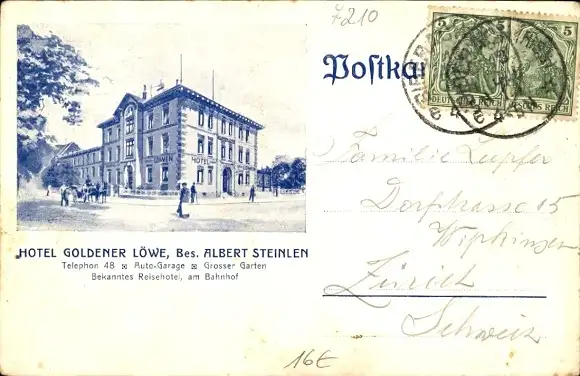 7210
Postkar
5 5
DEUTSCHES REICH
LÖWEN HOTEL
HOTEL GOLDENER LÖWE, Bes. ALBERT STEINLEN
Telephon 48 ¤ Auto-Garage ¤ Grosser Garten
Bekanntes Reisehotel, am Bahnhof
Familie Lupfer
Dorfstrasse 15
Wipkingen
Zürich
Schweiz
16€